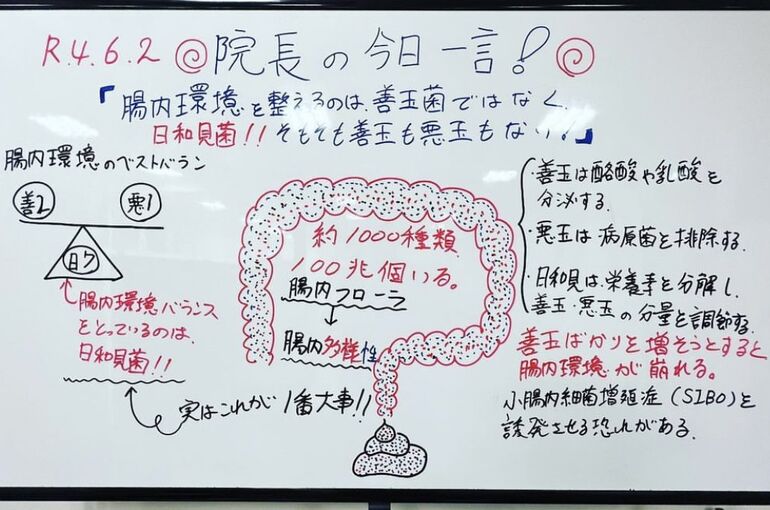 R.4.6.2 院長の今日一言!
「腸内環境を整えるのは、善玉菌ではなく、
日和見菌!!そもそも善玉も悪玉もない!」
腸内環境のベストバラン
善2
悪1
日7
腸内環境バランス
をとっているのは、
日和見菌!!
実はこれが1番大事!!
約1000種類
100兆個いる。
腸内フローラ
腸内多様性
・善玉は酪酸や乳酸を
分泌する。
・悪玉は病原菌を排除する。
・日和見は、栄養素を分解し、
善玉・悪玉の分量を調節する。
善玉ばかりを増そうとすると
腸内環境が崩れる。
小腸内細菌増殖症(SIBO)を
誘発させる恐れがある。